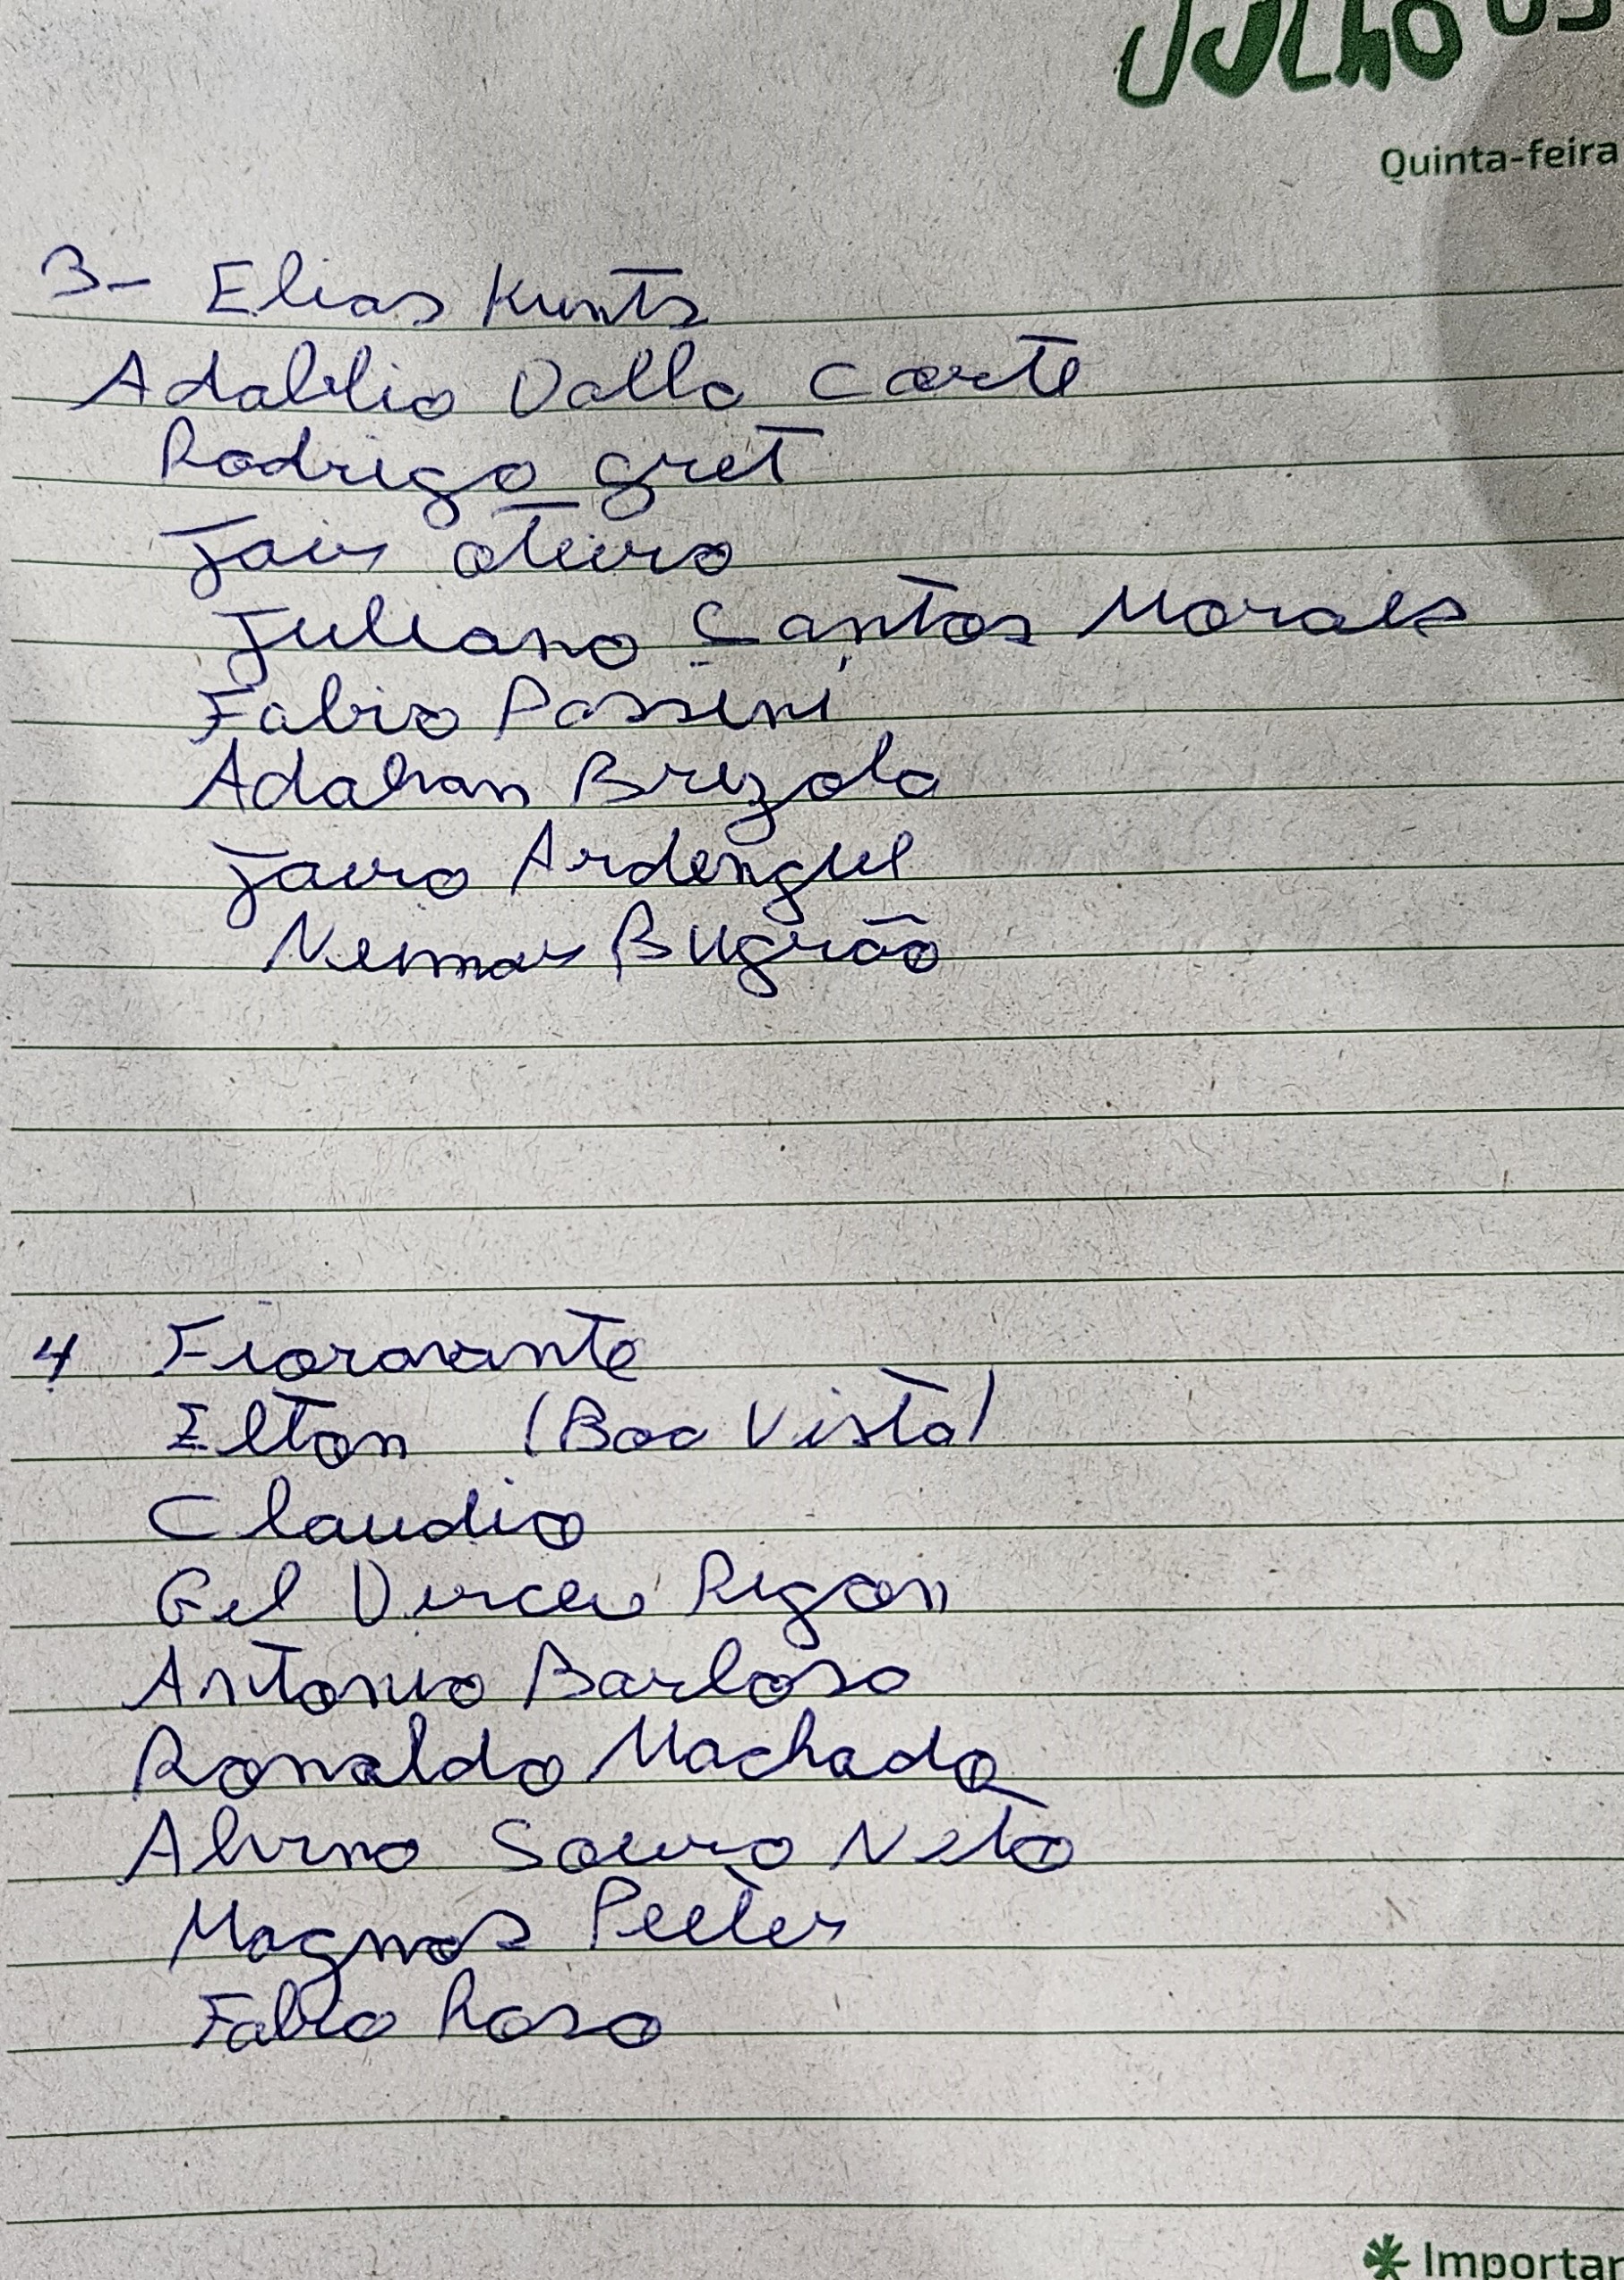 JULHO 03
Quinta-feira
3- Elias Kunts
Adablio Dalla Corte
Rodrigo gret
Jair oteiro
Juliano Santos Morais
Fabio Possini
Adahan Brizola
Jairo Ardengue
Neimar Bugrão
4 Fioravante
Elton (Boa Vista)
Claudio
Gil Dirceu Rigon
Antonio Barboso
Ronaldo Machado
Alvino Souiro Neto
Magnos Peeter
Fabio Roso
Importan